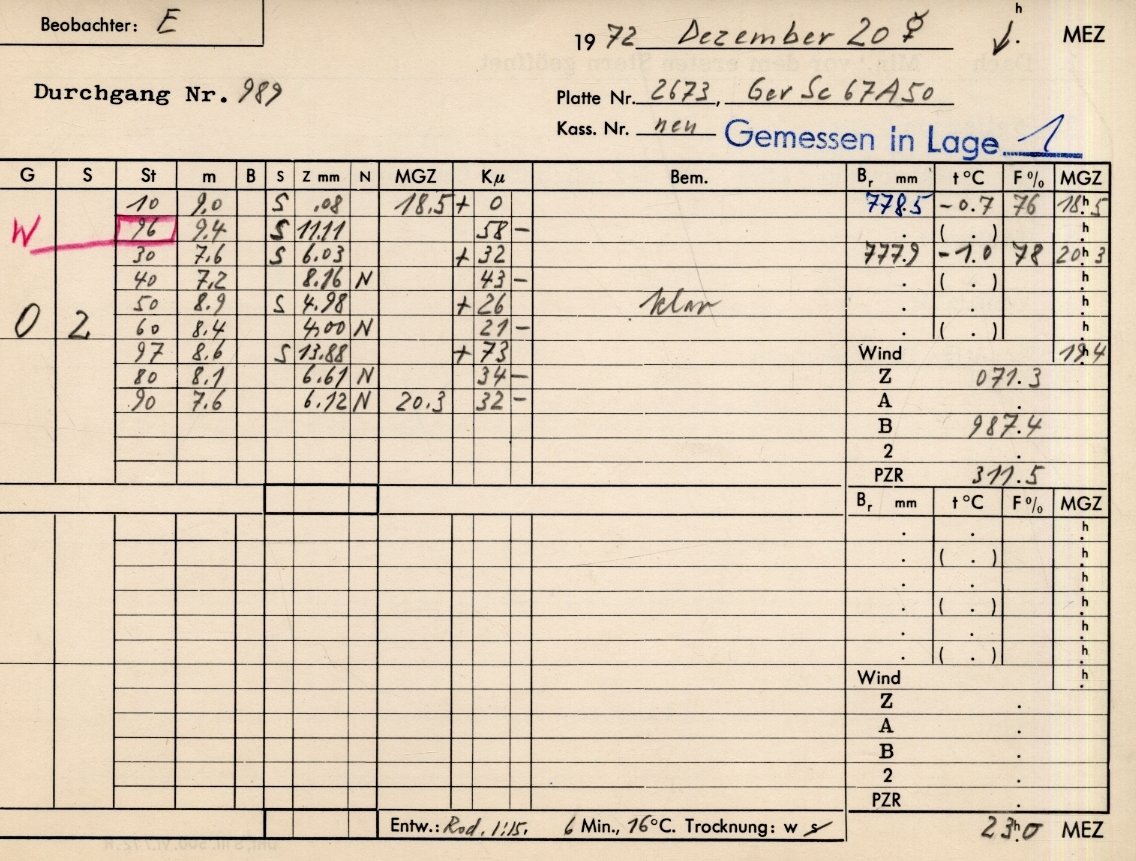 Beobachter: E
1972 Dezember 20 ☿ h. MEZ
Durchgang Nr. 989
Platte Nr. 2673, Ger Sc 67A50
Kass. Nr. neu Gemessen in Lage 1
G S St m B S Z mm N MGZ Kμ Bem. Br mm t °C F % MGZ
10 9.0 S .08 18.5 + 0 778.5 -0.7 76 18h5
W 96 9.4 S 11.11 58 - . ( . ) h.
30 7.6 S 6.03 + 32 777.9 -1.0 78 20h3
40 7.2 8.16 N 43 - . ( . ) h.
50 8.9 S 4.98 + 26 klar . . h.
0 2 60 8.4 4.00 N 21 - . ( . ) h.
97 8.6 S 13.88 + 73 Wind 19h4
80 8.1 6.61 N 34 - Z 071.3
90 7.6 6.12 N 20.3 32 - A .
B 987.4
2 .
PZR 311.5
Br mm t °C F % MGZ
. . h.
. ( . ) h.
. . h.
. ( . ) h.
. . h.
. ( . ) h.
Wind h.
Z .
A .
B .
2 .
PZR .
Entw.: Rod. 1:15. 6 Min., 16°C. Trocknung: w s 23h.0 MEZ